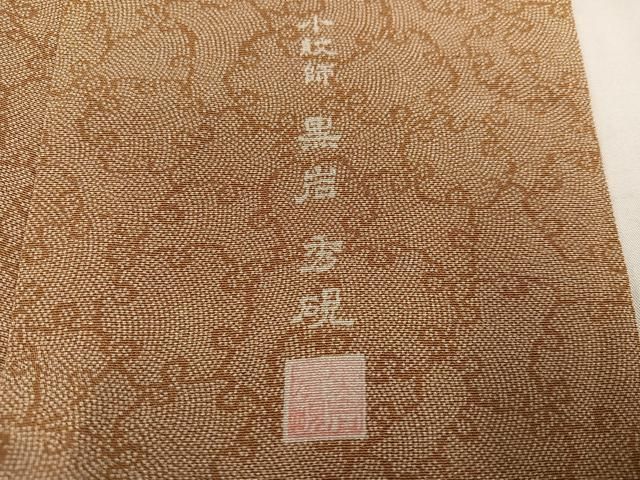 小紋師 黒岩 秀硯